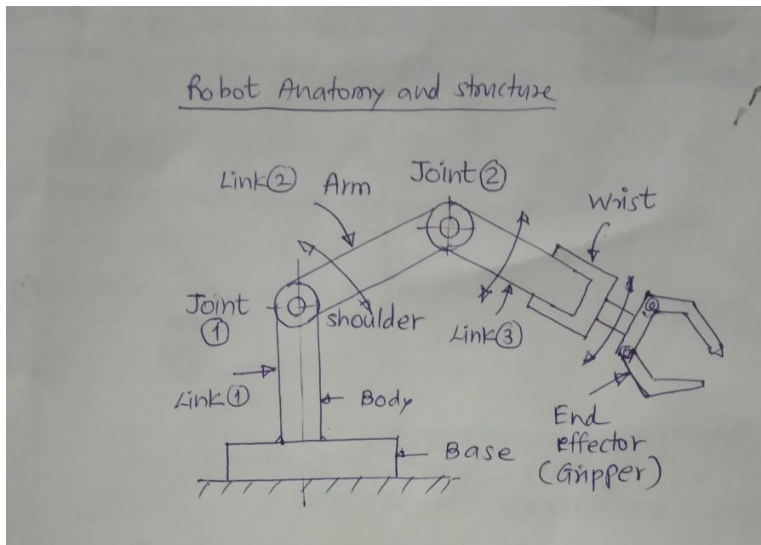 Robot Anatomy and structure
Link② Arm
Joint②
Wrist
Joint
①
shoulder
Link③
Link①
Body
Base
End
effector
(Gripper)